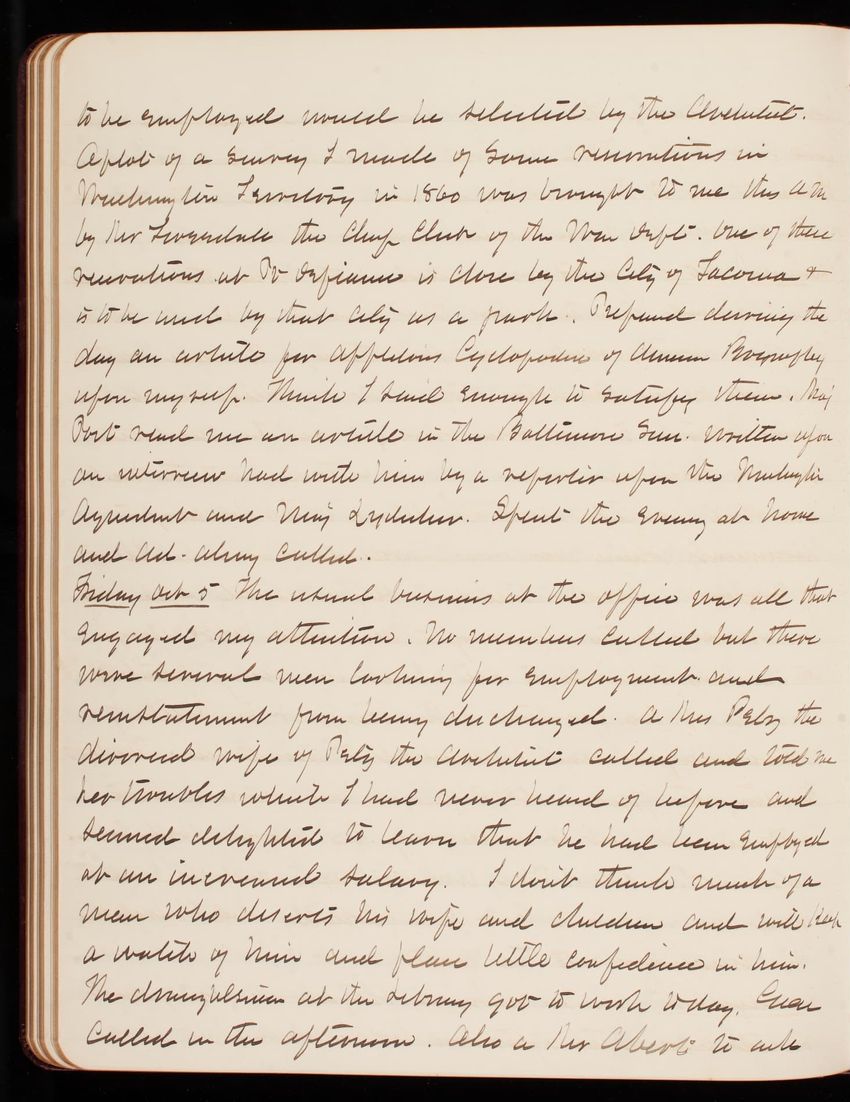 to be employed would be selected by the Architect.
A plot of a survey I made of some reservations in
Washington Territory in 1860 was brought to me this am
by Mr Tweedale the Chief Clerk of the War Dept. One of these
reservations at Pt Defiance is close by the City of Tacoma &
is to be used by that city as a park. Prepared during the
day an article for Appletons Cyclopedia of American Biography
upon myself. Think I said enough to satisfy them. Maj
Post read me an article in the Baltimore Sun. written upon
an interview had with him by a reporter upon the Washington
Aqueduct and Maj Lydecker. Spent the evening at home
and called.
Friday Oct 5 The usual business at the office was all that
engaged my attention. No members called but there
were several men looking for employment and
reinstatement from being discharged. A Mrs Pelz the
divorced wife of Pelz the Architect called and told me
her troubles which I had never heard of before and
seemed delighted to learn that he had been employed
at an increased salary. I don't think much of a
man who deserts his wife and children and will keep
a watch of him and place little confidence in him.
The draughtsmen at the Library got to work today. Green
called in the afternoon. Also a Mr Abert to ask